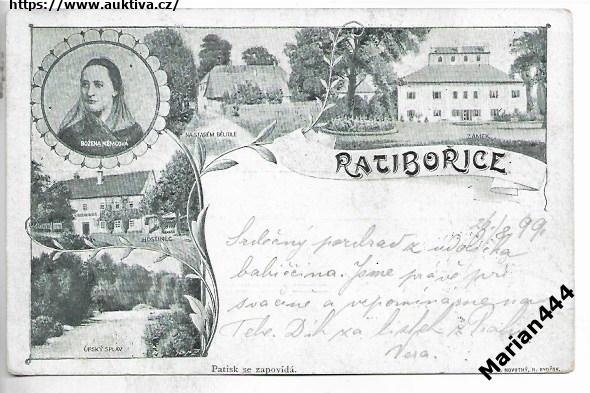 https://www.auktiva.cz/
BOŽENA NĚMCOVÁ
NA STARÉM BĚLIDLE
ZÁMEK
RATIBOŘICE
HOSTINEC
ÚPSKÝ SPLAV
99.
Srdečný pozdrav z údolíčka
babiččina. Jsme právě při
svačině a vzpomínáme na
Tebe. Dík za lístek z
Věra.
Patisk se zapovídá.
NOVOTNÝ, N. BYDŽOV.
Marian444